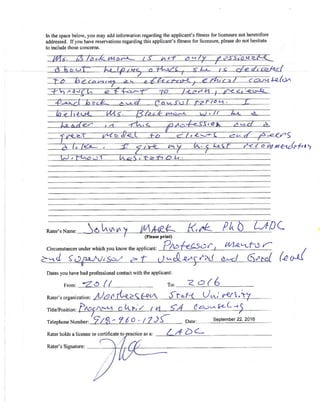 In the space below, you may add information regarding the applicant's fitness for licensure not heretofore
addressed. If you have reservations regarding this applicant's fitness for licensure, please do not hesitate
to include those concerns.
Ms. Blackmon is not only passionate
about helping others, she is dedicated
to becoming an effectual, ethical counselor
through effort to learn, receive
feed back and consultation. I
believe Ms. Blackmon will be a
leader in this profession and a
great model to clients and peers
alike. I give my highest recommendation
without hesitation.
Rater's Name: Johnny Mark Kirk PhD LADC
(Please print)
Circumstances under which you know the applicant: Professor, Mentor
and Supervisor at undergrad and Grad level
Dates you have had professional contact with the applicant:
From: 2011 To: 2016
Rater's organization: Northeastern State University
Title/Position: Program chair in SA Counseling
Telephone Number: 918-960-1725 Date: September 22, 2016
Rater holds a license or certificate to practice as a: LADC
Rater's Signature: